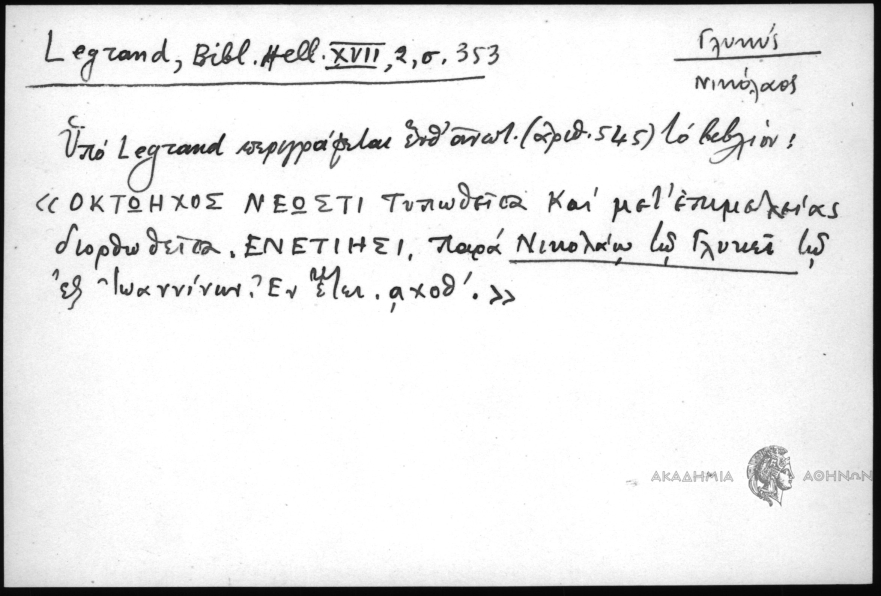 Legrand, Bibl. Hell. XVII, 2, σ. 353
Γλυκύς
Νικόλαος
Ὑπό Legrand περιγράφεται ἔνθ' ἀνωτ. (ἀριθ. 545) τό βιβλίον:
«ΟΚΤΩΗΧΟΣ ΝΕΩΣΤΙ τυπωθεῖσα καί μετ' ἐπιμελείας
διορθωθεῖσα. ΕΝΕΤΙΗΣΙ, παρά Νικολάῳ τῷ Γλυκεῖ τῷ
ἐξ Ἰωαννίνων. Ἐν ἔτει. ͵αχοθ'.»
ΑΚΑΔΗΜΙΑ ΑΘΗΝΩΝ